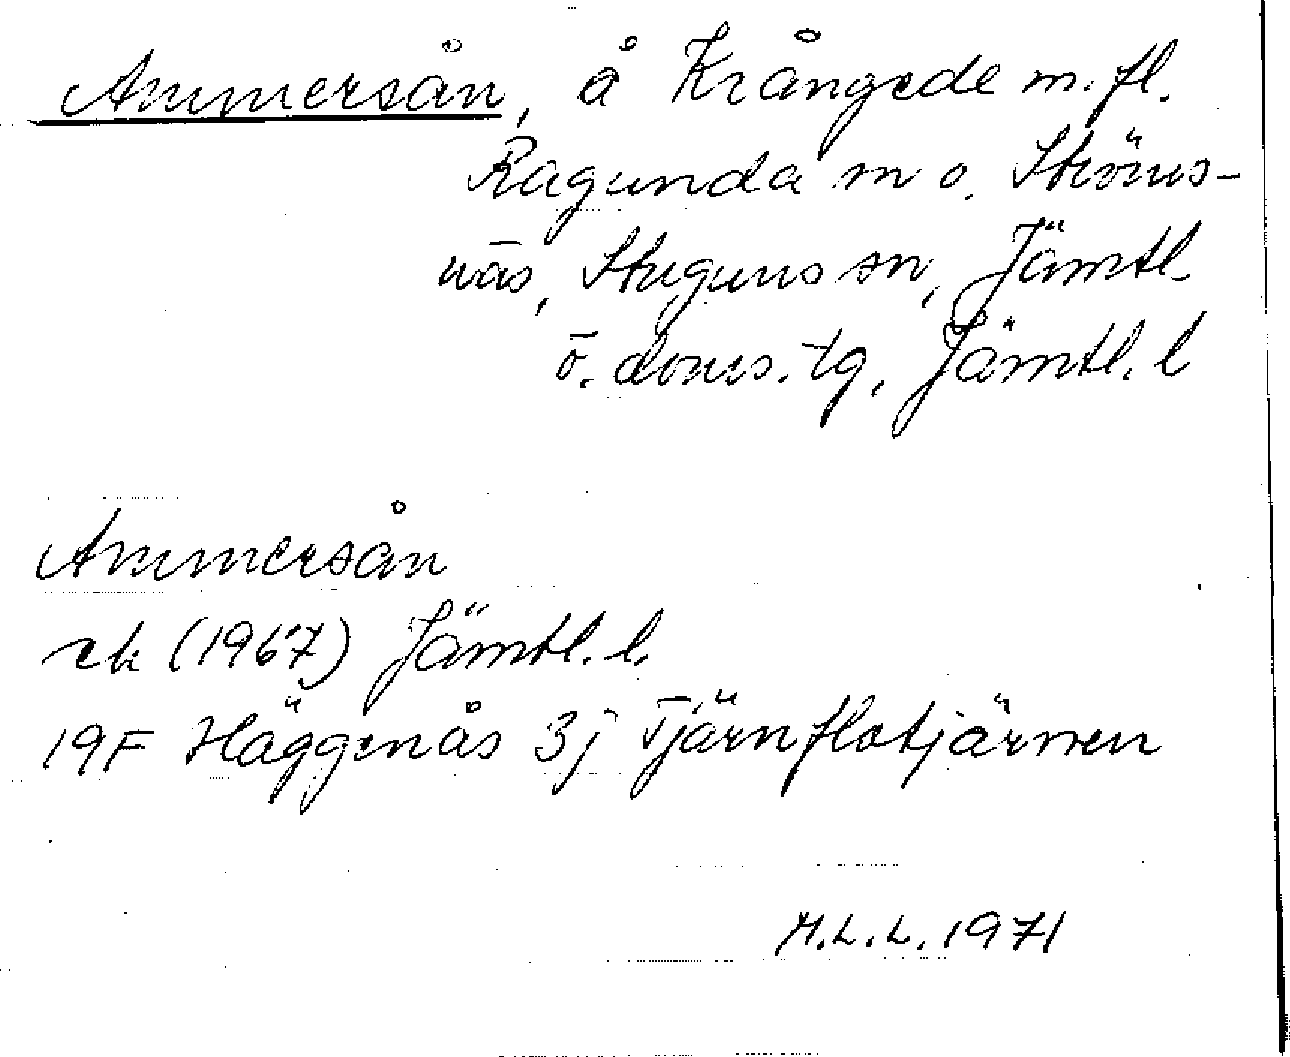 Ammersån, å Krångede m.fl.
Ragunda sn o. Ströms-
näs, Stuguns sn, Jämtl.
ö. doms. tg, Jämtl. l
Ammersån
ek (1967) Jämtl. l.
19F Häggenås 3j Tjärnflotjärnen
M.L.L. 1971